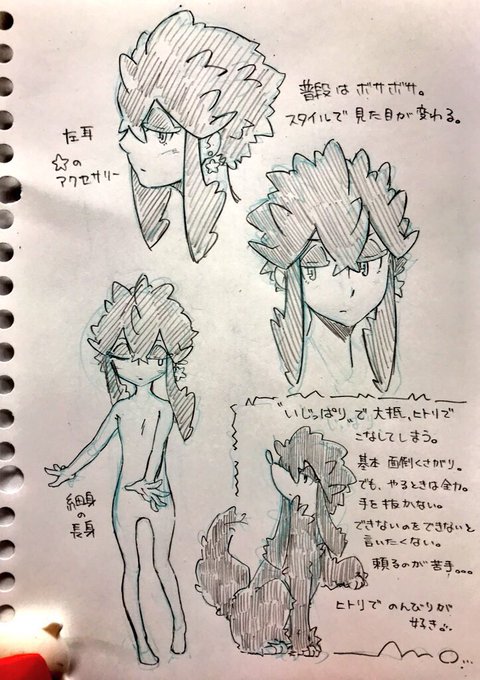 普段はボサボサ。
スタイルで見た目が変わる。
左耳
☆の
アクセサリー
細身
の
長身
"いじっぱり"で大抵、ヒトリで
こなしてしまう。
基本面倒くさがり。
でも、やるときは全力。
手を抜かない。
できないのをできないと
言いたくない。
頼るのが苦手…。
ヒトリでのんびりが
好き…